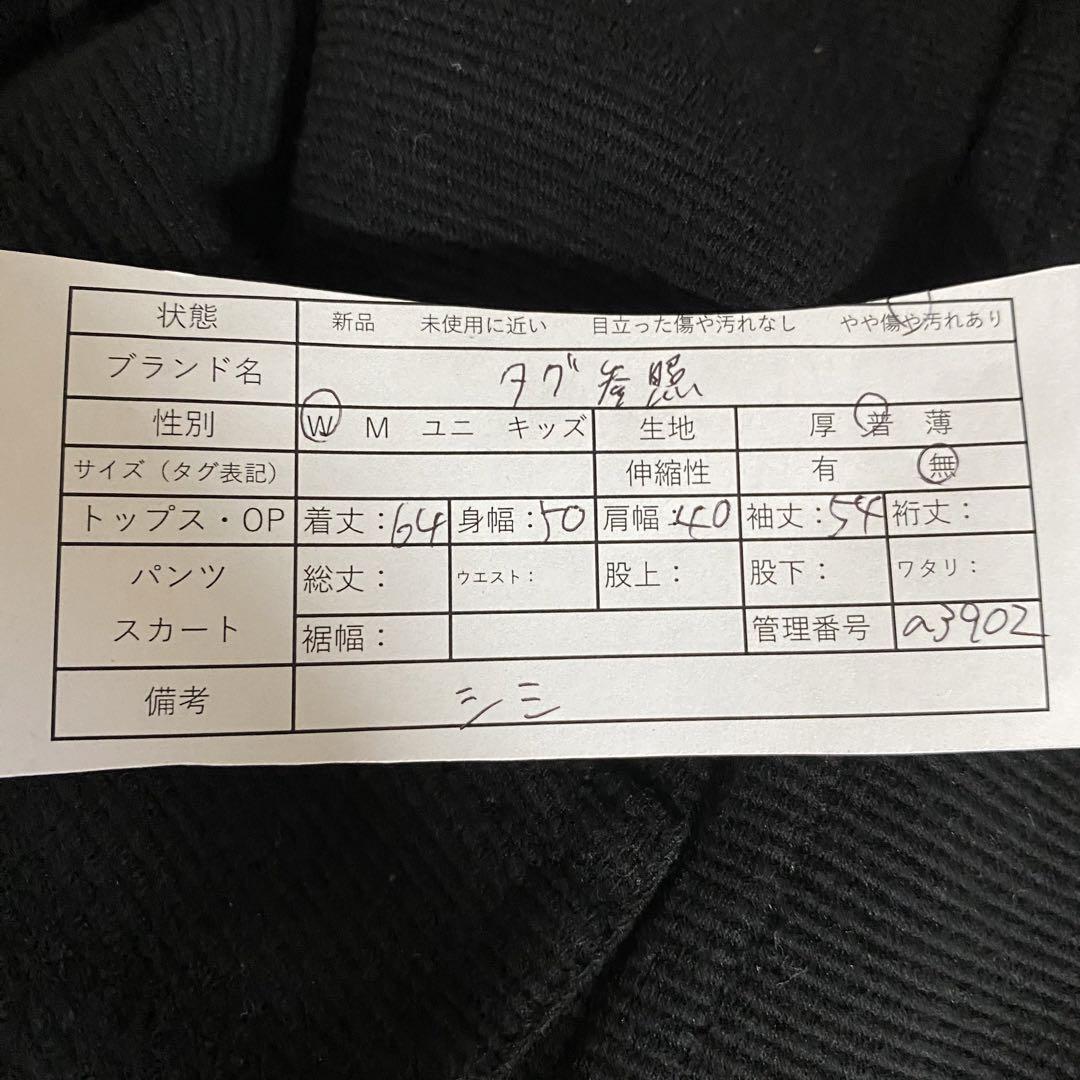 状態 新品 未使用に近い 目立った傷や汚れなし やや傷や汚れあり
ブランド名 タグ参照
性別 W M ユニ キッズ 生地 厚 普 薄
サイズ（タグ表記） 伸縮性 有 無
トップス・OP 着丈：64 身幅：50 肩幅：40 袖丈：54 裄丈：
パンツ 総丈： ウエスト： 股上： 股下： ワタリ：
スカート 裾幅： 管理番号 a3902
備考 シミ